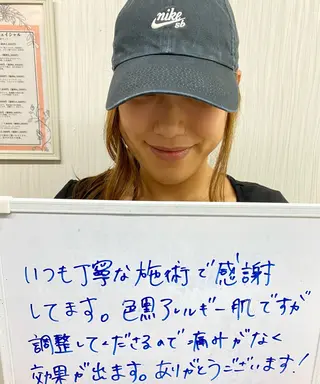 NIKE
SB
いつも丁寧な施術で感謝
してます。色黒アレルギー肌ですが
調整してくださるので痛みがなく
効果が出ます。ありがとうございます!